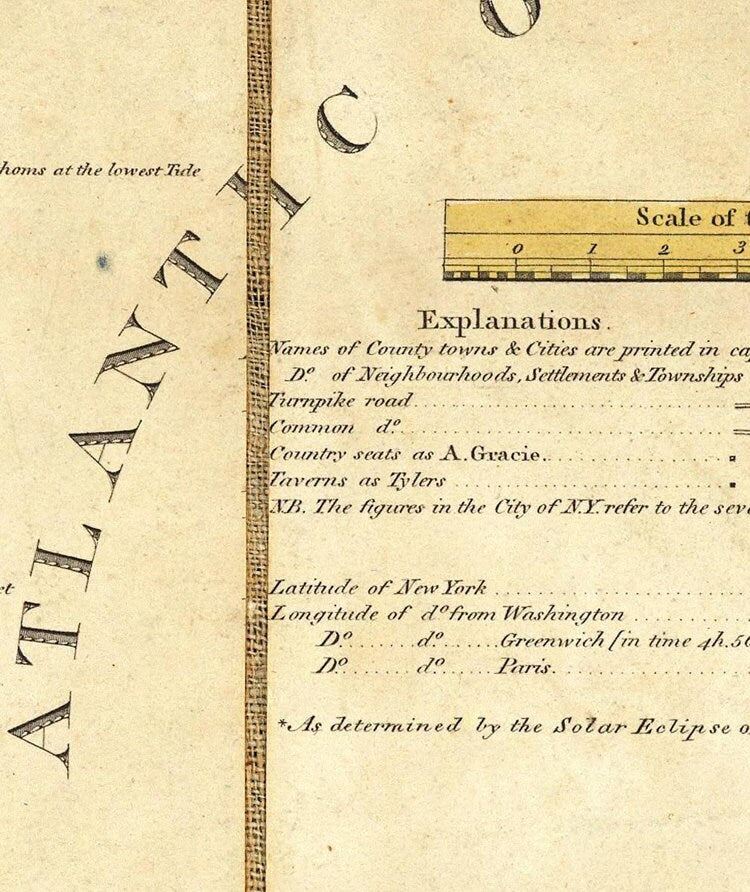 ATLANTIC O
homs at the lowest Tide
Scale of
0 1 2 3
Explanations.
Names of County towns & Cities are printed in ca
Dº. of Neighbourhoods, Settlements & Townships
Turnpike road
Common dº.
Country seats as A.Gracie.
Taverns as Tylers
N.B. The figures in the City of N.Y. refer to the sev
Latitude of New York
Longitude of dº from Washington
Dº. dº. Greenwich [in time 4h.5
Dº. dº. Paris.
*As determined by the Solar Eclipse o